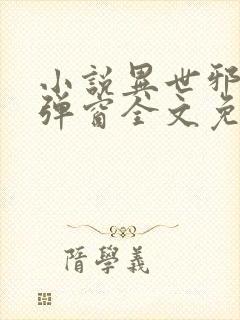 小說異世邪
彈窗全文免
隋學義